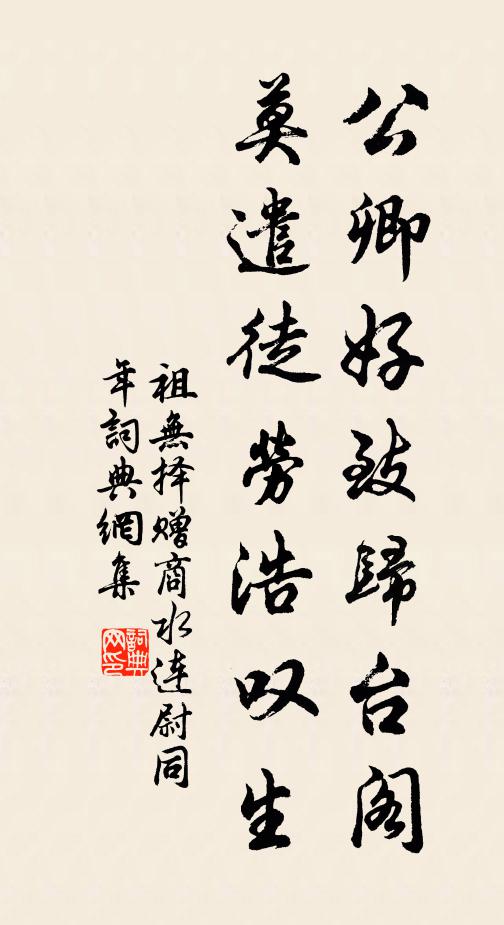 公卿好致歸台阁
莫遣徒勞浩叹生
祖無择赠商水连尉同
年詞典網集
詞典网印